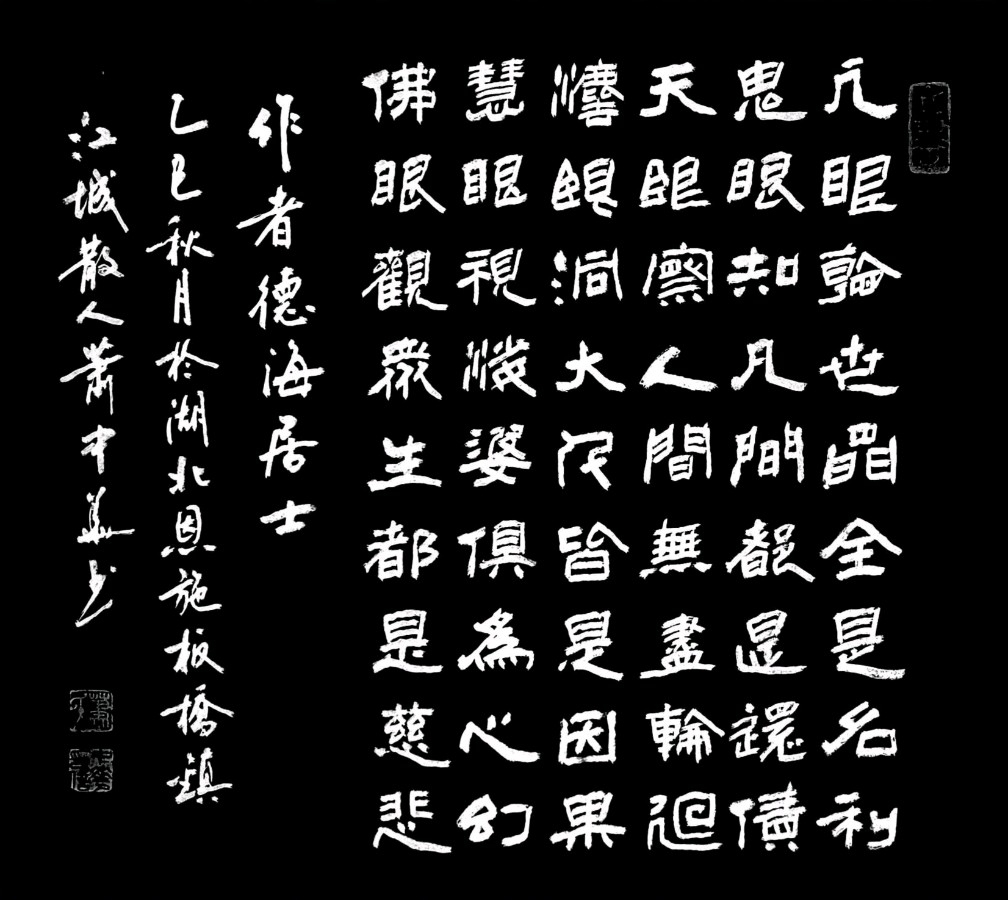 凡眼論世間全是名利
鬼眼知凡間都是還債
天眼察人間無盡輪迴
法眼洞大皆是因果
慧眼視娑婆俱為心幻
佛眼觀眾生都是慈悲
作者德海居士
乙巳秋月於湖北恩施板橋鎮
江城散人蕭中華书